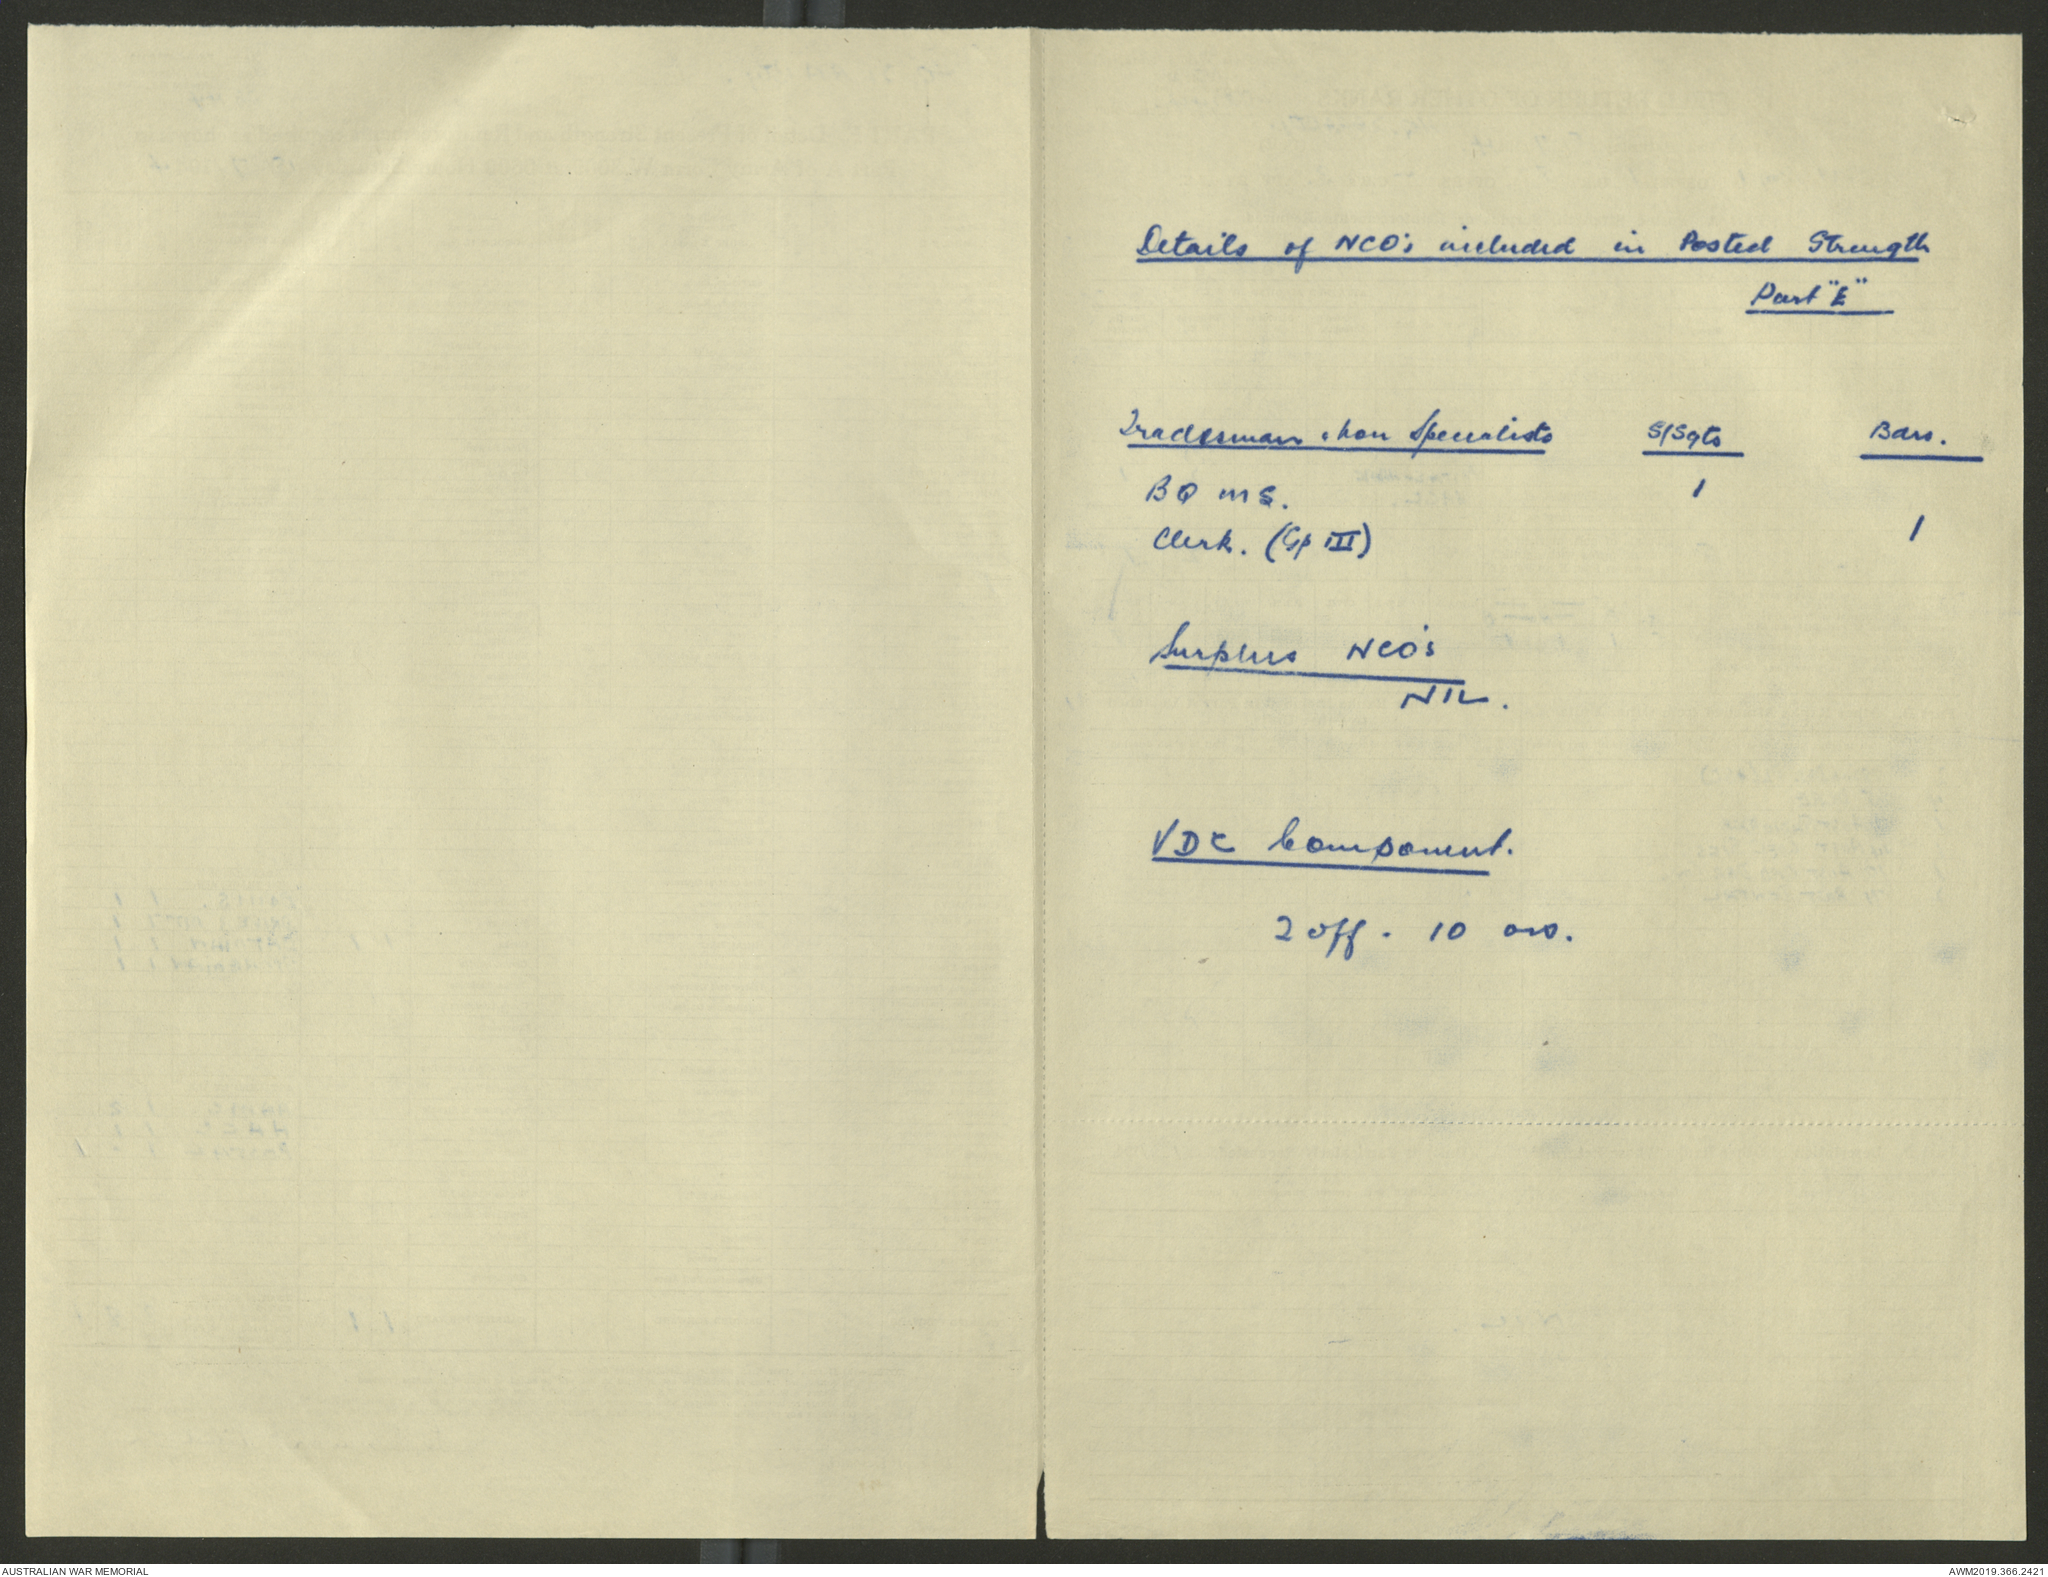 Details of NCO's included in Posted Strength
Part "E"
Tradesman & Non Specialists S/Sgts Bdrs.
BQMS. 1
Clerk. (Gp III) 1
Surplus NCO's
NIL.
VDC Component.
2 off. 10 ors.
AUSTRALIAN WAR MEMORIAL
AWM2019.366.2421